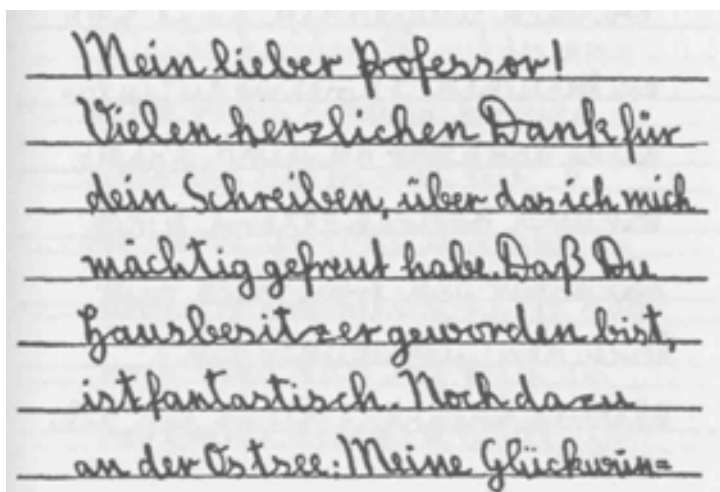 Mein lieber Professor!
Vielen herzlichen Dank für
dein Schreiben, über das ich mich
mächtig gefreut habe. Daß Du
Hausbesitzer geworden bist,
ist fantastisch. Noch dazu
an der Ostsee: Meine Glückwün=